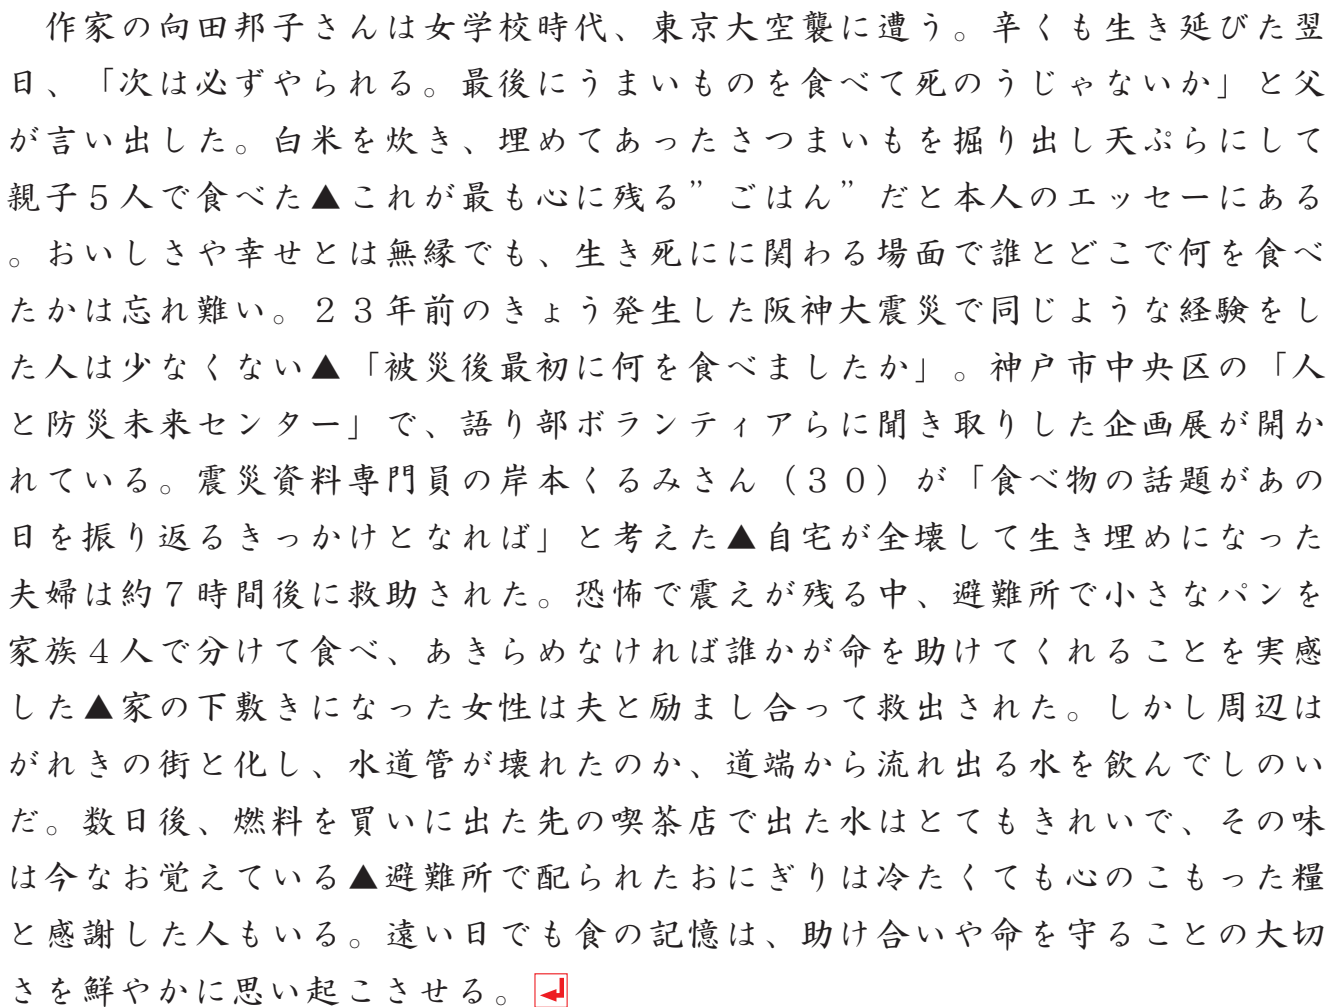 作家の向田邦子さんは女学校時代、東京大空襲に遭う。辛くも生き延びた翌
日、「次は必ずやられる。最後にうまいものを食べて死のうじゃないか」と父
が言い出した。白米を炊き、埋めてあったさつまいもを掘り出し天ぷらにして
親子５人で食べた▲これが最も心に残る”ごはん”だと本人のエッセーにある
。おいしさや幸せとは無縁でも、生き死にに関わる場面で誰とどこで何を食べ
たかは忘れ難い。２３年前のきょう発生した阪神大震災で同じような経験をし
た人は少なくない▲「被災後最初に何を食べましたか」。神戸市中央区の「人
と防災未来センター」で、語り部ボランティアらに聞き取りした企画展が開か
れている。震災資料専門員の岸本くるみさん（３０）が「食べ物の話題があの
日を振り返るきっかけとなれば」と考えた▲自宅が全壊して生き埋めになった
夫婦は約７時間後に救助された。恐怖で震えが残る中、避難所で小さなパンを
家族４人で分けて食べ、あきらめなければ誰かが命を助けてくれることを実感
した▲家の下敷きになった女性は夫と励まし合って救出された。しかし周辺は
がれきの街と化し、水道管が壊れたのか、道端から流れ出る水を飲んでしのい
だ。数日後、燃料を買いに出た先の喫茶店で出た水はとてもきれいで、その味
は今なお覚えている▲避難所で配られたおにぎりは冷たくても心のこもった糧
と感謝した人もいる。遠い日でも食の記憶は、助け合いや命を守ることの大切
さを鮮やかに思い起こさせる。